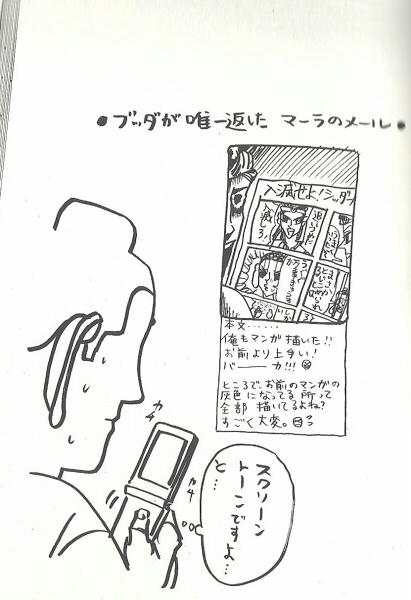 ●ブッダが唯一返した マーラのメール●
入滅せよ!シッダ
滅しろ!
本文……
俺もマンガ描いた!!
お前より上手い!
バーーカ!!!
ところで、お前のマンガの
灰色になってる所って
全部描いてるよね?
すごく大変。
カチ
カチ
スクリーン
トーンですよ…
と…